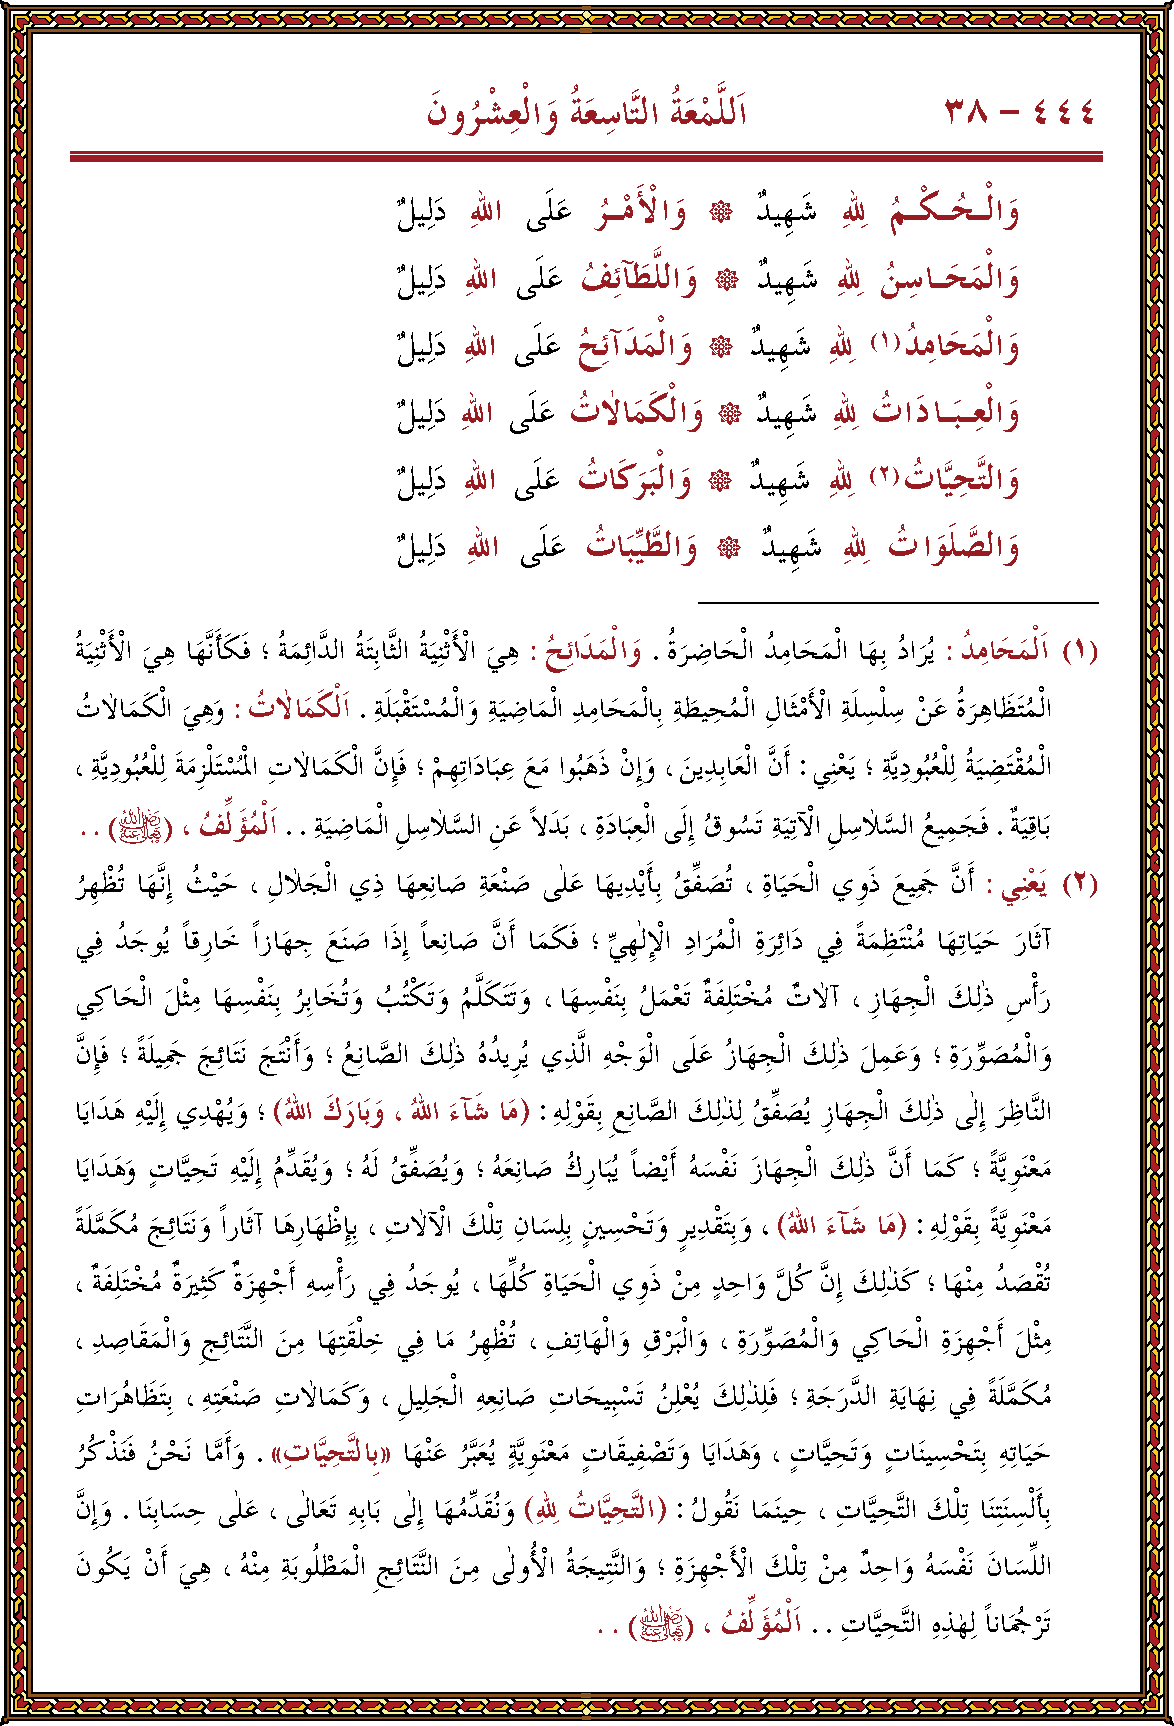 ٤٤٤ – ٣٨ اَللَّمْعَةُ التَّاسِعَةُ وَالْعِشْرُونَ
وَالْـحُـكْـمُ لِلهِ شَهِيدٌ ۞ وَالْأَمْـرُ عَلَى اللهِ دَلِيلٌ
وَالْمَحَـاسِنُ لِلهِ شَهِيدٌ ۞ وَاللَّطَآئِفُ عَلَى اللهِ دَلِيلٌ
وَالْمَحَامِدُ(١) لِلهِ شَهِيدٌ ۞ وَالْمَدَآئِحُ عَلَى اللهِ دَلِيلٌ
وَالْعِـبَـادَاتُ لِلهِ شَهِيدٌ ۞ وَالْكَمَالَاتُ عَلَى اللهِ دَلِيلٌ
وَالتَّحِيَّاتُ(٢) لِلهِ شَهِيدٌ ۞ وَالْبَرَكَاتُ عَلَى اللهِ دَلِيلٌ
وَالصَّلَوَاتُ لِلهِ شَهِيدٌ ۞ وَالطَّيِّبَاتُ عَلَى اللهِ دَلِيلٌ
(١) اَلْمَحَامِدُ : يُرَادُ بِهَا الْمَحَامِدُ الْحَاضِرَةُ . وَالْمَدَائِحُ : هِيَ الْأَثْنِيَةُ الثَّابِتَةُ الدَّائِمَةُ ؛ فَكَأَنَّهَا هِيَ الْأَثْنِيَةُ
الْمُتَظَاهِرَةُ عَنْ سِلْسِلَةِ الْأَمْثَالِ الْمُحِيطَةِ بِالْمَحَامِدِ الْمَاضِيَةِ وَالْمُسْتَقْبَلَةِ . اَلْكَمَالَاتُ : وَهِيَ الْكَمَالَاتُ
الْمُقْتَضِيَةُ لِلْعُبُودِيَّةِ ؛ يَعْنِي : أَنَّ الْعَابِدِينَ ، وَإِنْ ذَهَبُوا مَعَ عِبَادَاتِهِمْ ؛ فَإِنَّ الْكَمَالَاتِ الْمُسْتَلْزِمَةَ لِلْعُبُودِيَّةِ ،
بَاقِيَةٌ . فَجَمِيعُ السَّلَاسِلِ الْآتِيَةِ تَسُوقُ إِلَى الْعِبَادَةِ ، بَدَلًا عَنِ السَّلَاسِلِ الْمَاضِيَةِ . . اَلْمُؤَلِّفُ ، (رضي الله عنه) . .
(٢) يَعْنِي : أَنَّ جَمِيعَ ذَوِي الْحَيَاةِ ، تُصَفِّقُ بِأَيْدِيهَا عَلَى صَنْعَةِ صَانِعِهَا ذِي الْجَلَالِ ، حَيْثُ إِنَّهَا تُظْهِرُ
آثَارَ حَيَاتِهَا مُنْتَظِمَةً فِي دَائِرَةِ الْمُرَادِ الْإِلٰهِيِّ ؛ فَكَمَا أَنَّ صَانِعاً إِذَا صَنَعَ جِهَازاً خَارِقاً يُوجَدُ فِي
رَأْسِ ذٰلِكَ الْجِهَازِ ، آلَاتٌ مُخْتَلِفَةٌ تَعْمَلُ بِنَفْسِهَا ، وَتَتَكَلَّمُ وَتَكْتُبُ وَتُخَابِرُ بِنَفْسِهَا مِثْلَ الْحَاكِي
وَالْمُصَوِّرَةِ ؛ وَعَمِلَ ذٰلِكَ الْجِهَازُ عَلَى الْوَجْهِ الَّذِي يُرِيدُهُ ذٰلِكَ الصَّانِعُ ؛ وَأَنْتَجَ نَتَائِجَ جَمِيلَةً ؛ فَإِنَّ
النَّاظِرَ إِلٰى ذٰلِكَ الْجِهَازِ يُصَفِّقُ لِذٰلِكَ الصَّانِعِ بِقَوْلِهِ : (مَا شَآءَ اللهُ ، وَبَارَكَ اللهُ) ؛ وَيُهْدِي إِلَيْهِ هَدَايَا
مَعْنَوِيَّةً ؛ كَمَا أَنَّ ذٰلِكَ الْجِهَازَ نَفْسَهُ أَيْضاً يُبَارِكُ صَانِعَهُ ؛ وَيُصَفِّقُ لَهُ ؛ وَيُقَدِّمُ إِلَيْهِ تَحِيَّاتٍ وَهَدَايَا
مَعْنَوِيَّةً بِقَوْلِهِ : (مَا شَآءَ اللهُ) ، وَبِتَقْدِيرٍ وَتَحْسِينٍ بِلِسَانِ تِلْكَ الْآلَاتِ ، بِإِظْهَارِهَا آثَاراً وَنَتَائِجَ مُكَمَّلَةً
تُقْصَدُ مِنْهَا ؛ كَذٰلِكَ إِنَّ كُلَّ وَاحِدٍ مِنْ ذَوِي الْحَيَاةِ كُلِّهَا ، يُوجَدُ فِي رَأْسِهِ أَجْهِزَةٌ كَثِيرَةٌ مُخْتَلِفَةٌ ،
مِثْلَ أَجْهِزَةِ الْحَاكِي وَالْمُصَوِّرَةِ ، وَالْبَرْقِ وَالْهَاتِفِ ، تُظْهِرُ مَا فِي خِلْقَتِهَا مِنَ النَّتَائِجِ وَالْمَقَاصِدِ ،
مُكَمَّلَةً فِي نِهَايَةِ الدَّرَجَةِ ؛ فَلِذٰلِكَ يُعْلِنُ تَسْبِيحَاتِ صَانِعِهِ الْجَلِيلِ ، وَكَمَالَاتِ صَنْعَتِهِ ، بِتَظَاهُرَاتِ
حَيَاتِهِ بِتَحْسِينَاتٍ وَتَحِيَّاتٍ ، وَهَدَايَا وَتَصْفِيقَاتٍ مَعْنَوِيَّةٍ يُعَبَّرُ عَنْهَا «بِالتَّحِيَّاتِ» . وَأَمَّا نَحْنُ فَنَذْكُرُ
بِأَلْسِنَتِنَا تِلْكَ التَّحِيَّاتِ ، حِينَمَا نَقُولُ : (التَّحِيَّاتُ لِلهِ) وَنُقَدِّمُهَا إِلٰى بَابِهِ تَعَالٰى ، عَلٰى حِسَابِنَا . وَإِنَّ
اللِّسَانَ نَفْسَهُ وَاحِدٌ مِنْ تِلْكَ الْأَجْهِزَةِ ؛ وَالنَّتِيجَةُ الْأُولٰى مِنَ النَّتَائِجِ الْمَطْلُوبَةِ مِنْهُ ، هِيَ أَنْ يَكُونَ
تَرْجُمَاناً لِهٰذِهِ التَّحِيَّاتِ . . اَلْمُؤَلِّفُ ، (رضي الله عنه) . .